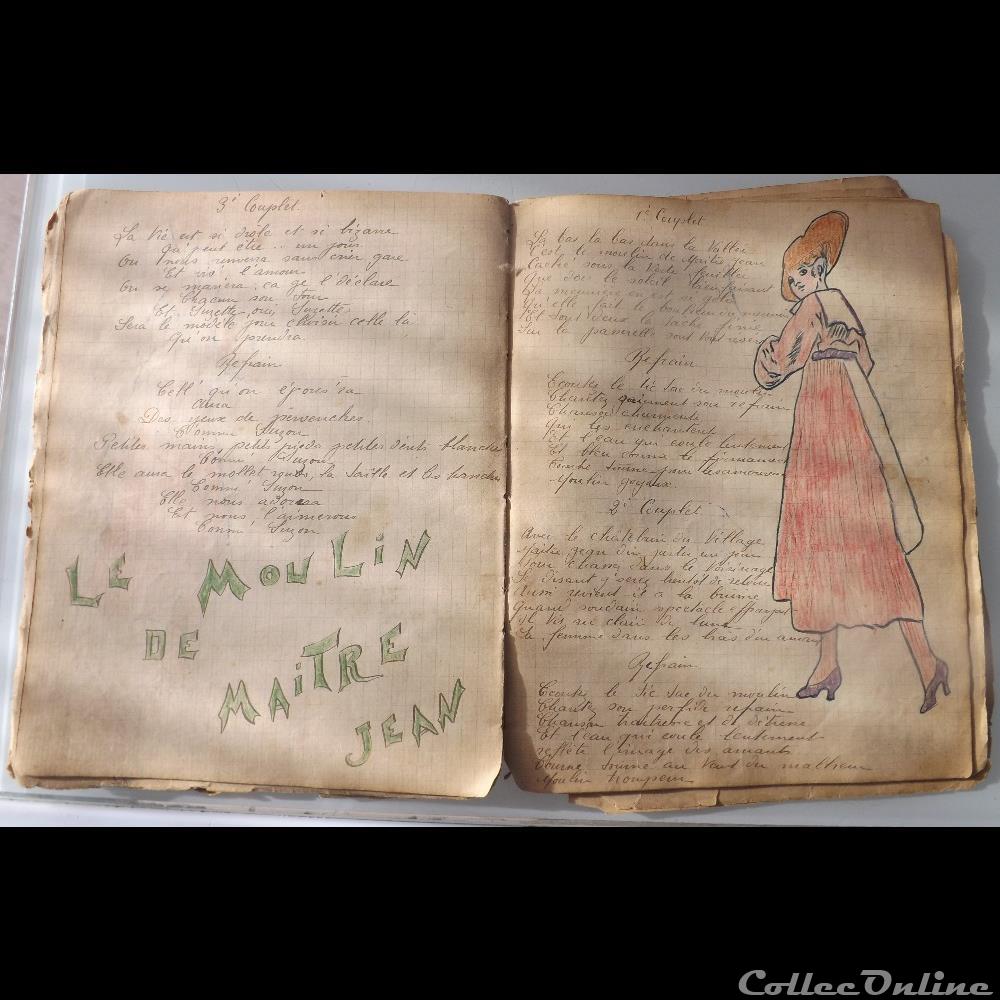 3e Couplet.
La Vie est si drole et si bizarre
Qu'peut être .. un jour
On nous verra sans crier gare
Et viv' l'amour
On se mariera, ça je l'déclare
Chacun son tour
Et Suzette, oui Suzette
Sera le modèle pour choisir celle là
Qu'on prendra.
Refrain
Cell' qu'on épous'ra
aura
Des yeux de pervenches
Comme Suzon
Petites mains, petits pieds petites dents blanches
Comm' Suzon
Elle aura le mollet rond, la taille et les hanches
Comm' Suzon
Elle nous adorera
Et nous l'aimerons
Comm' Suzon
LE MOULIN
DE
MAITRE
JEAN
1e Couplet
La bas la bas dans la Vallée
C'est le moulin de Maitre Jean
Caché sous la Verte feuillée
Que dore le soleil bienfaisant
Sa meunière en est si
Qu'elle fait le bonheur du meunier
Et tous deux la tache finie
Sur la passerelle vont
Refrain
Ecoutez le tic tac du moulin
Chantez gaiement son refrain
Chanson charmante
Qui les enchantent
Et l'eau qui coule lentement
Et bleu comme le firmament
Tourne tourne pour les amours
Moulin joyeux.
2e Couplet
Avec le châtelain du Village
Maitre Jean du partir un jour
Pour chasser dans le Voisinage
Se disant j'serez bientot de retour
Aussi revient-il à la brume
Quand soudain spectacle effrayant
Il vit au clair de lune
Sa femme dans les bras d'un amant
Refrain
Ecoutez le tic tac du moulin
Chantez son perfide refrain
Chanson traitresse et de détresse
Et l'eau qui coule lentement
reflète l'image des amants
Tourne tourne au Vent du malheur
Moulin trompeur
CollecOnline